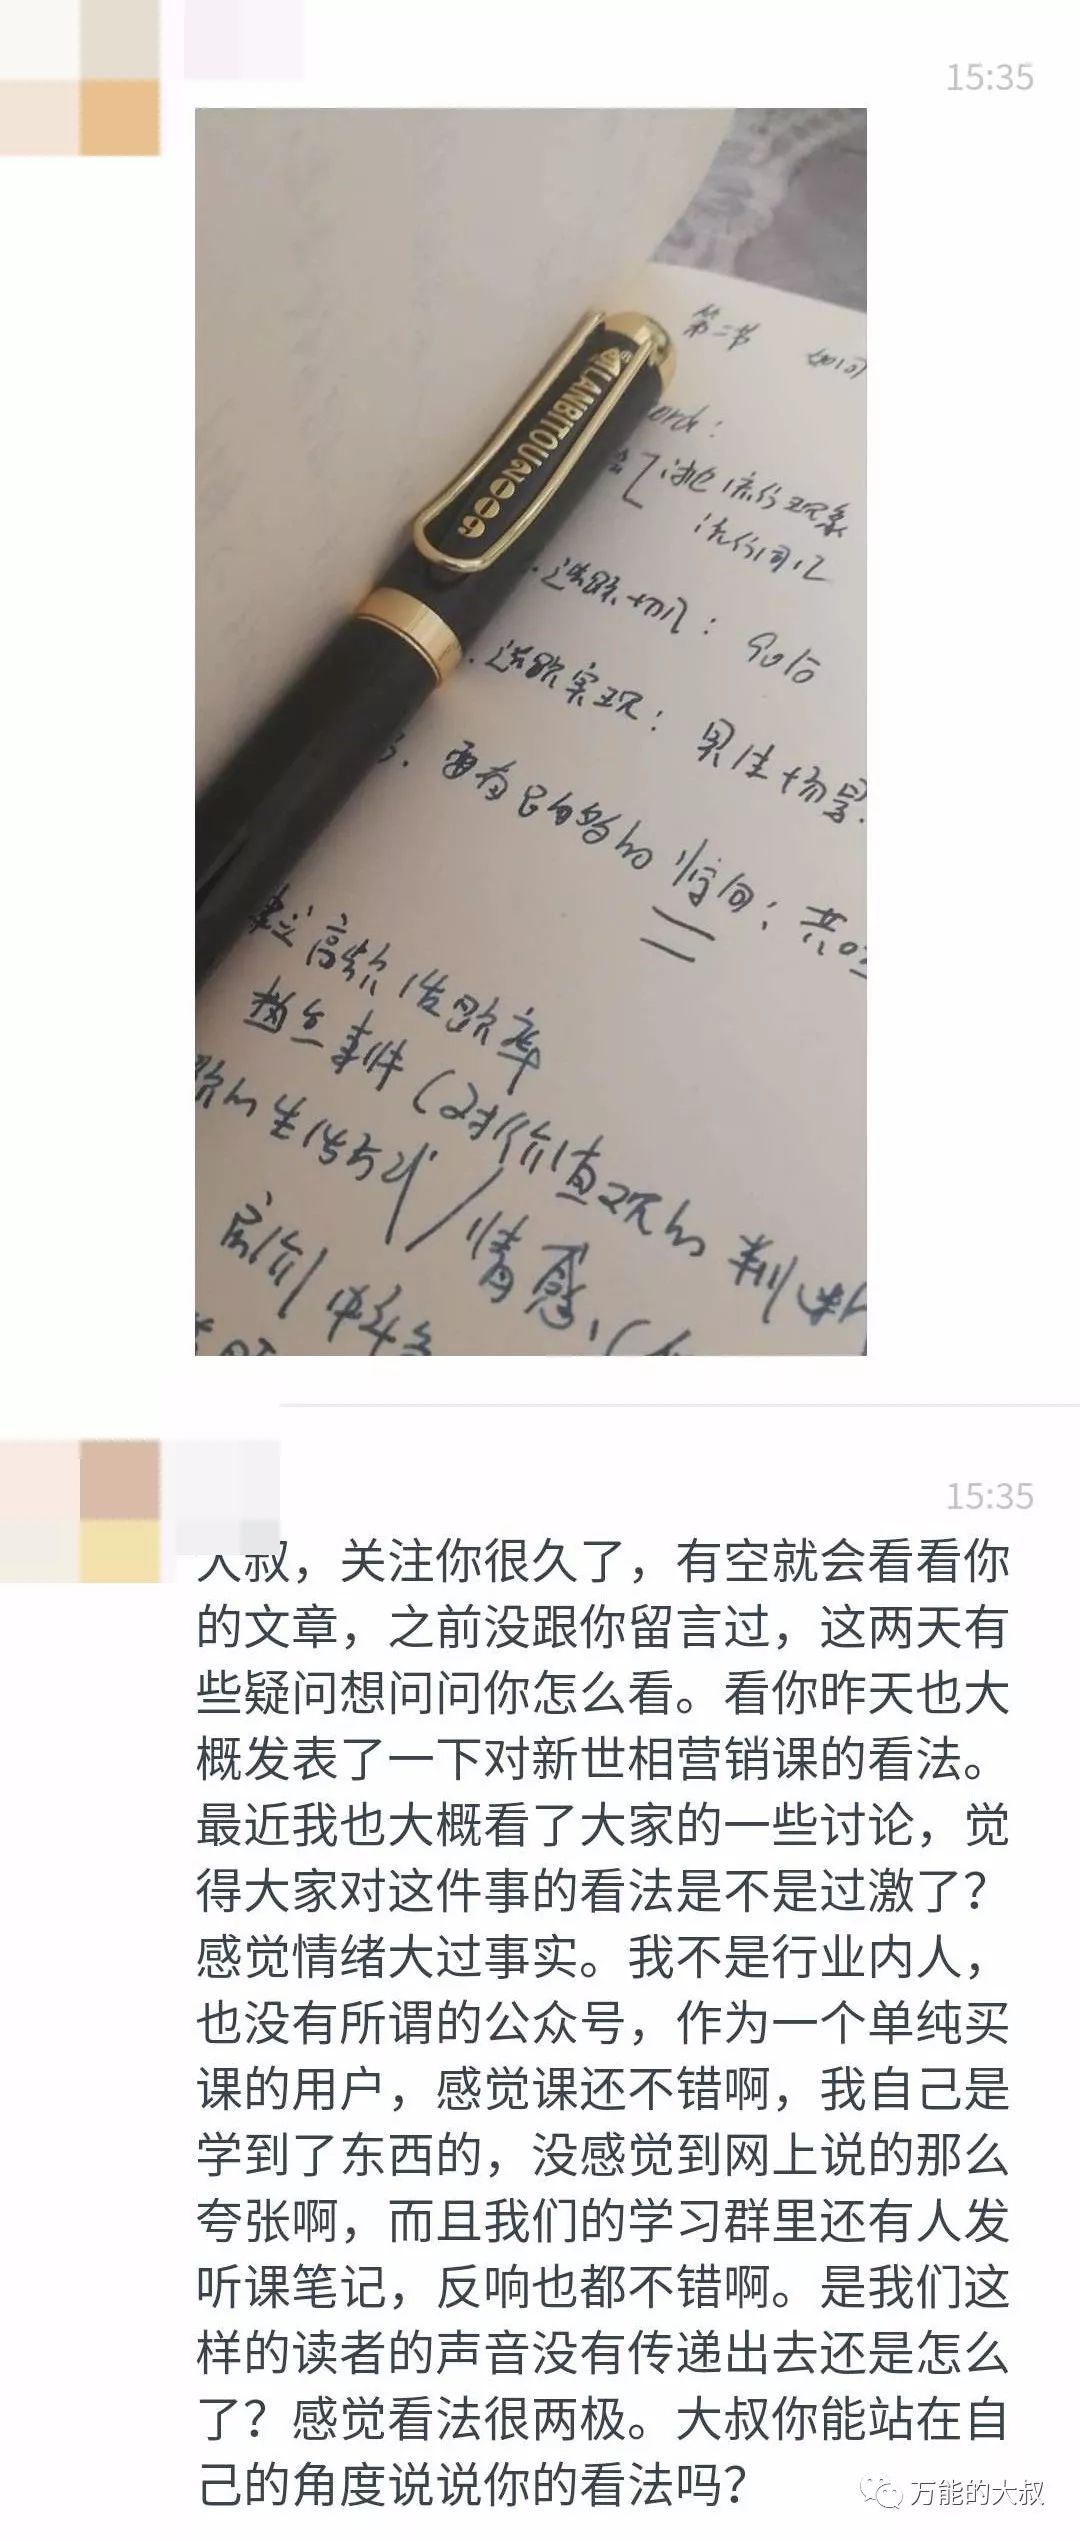 15:35
LANBITOU2006
第二节 如何
ord:
流行现象
流行词汇
选题切入:
选题实现: 男生场景.
要有足够的 空间:
建立高频
事件 (对价值观的判断
生活方式/情感, (
房价
15:35
大叔，关注你很久了，有空就会看看你
的文章，之前没跟你留言过，这两天有
些疑问想问问你怎么看。看你昨天也大
概发表了一下对新世相营销课的看法。
最近我也大概看了大家的一些讨论，觉
得大家对这件事的看法是不是过激了？
感觉情绪大过事实。我不是行业内人，
也没有所谓的公众号，作为一个单纯买
课的用户，感觉课还不错啊，我自己是
学到了东西的，没感觉到网上说的那么
夸张啊，而且我们的学习群里还有人发
听课笔记，反响也都不错啊。是我们这
样的读者的声音没有传递出去还是怎么
了？感觉看法很两极。大叔你能站在自
己的角度说说你的看法吗？
万能的大叔